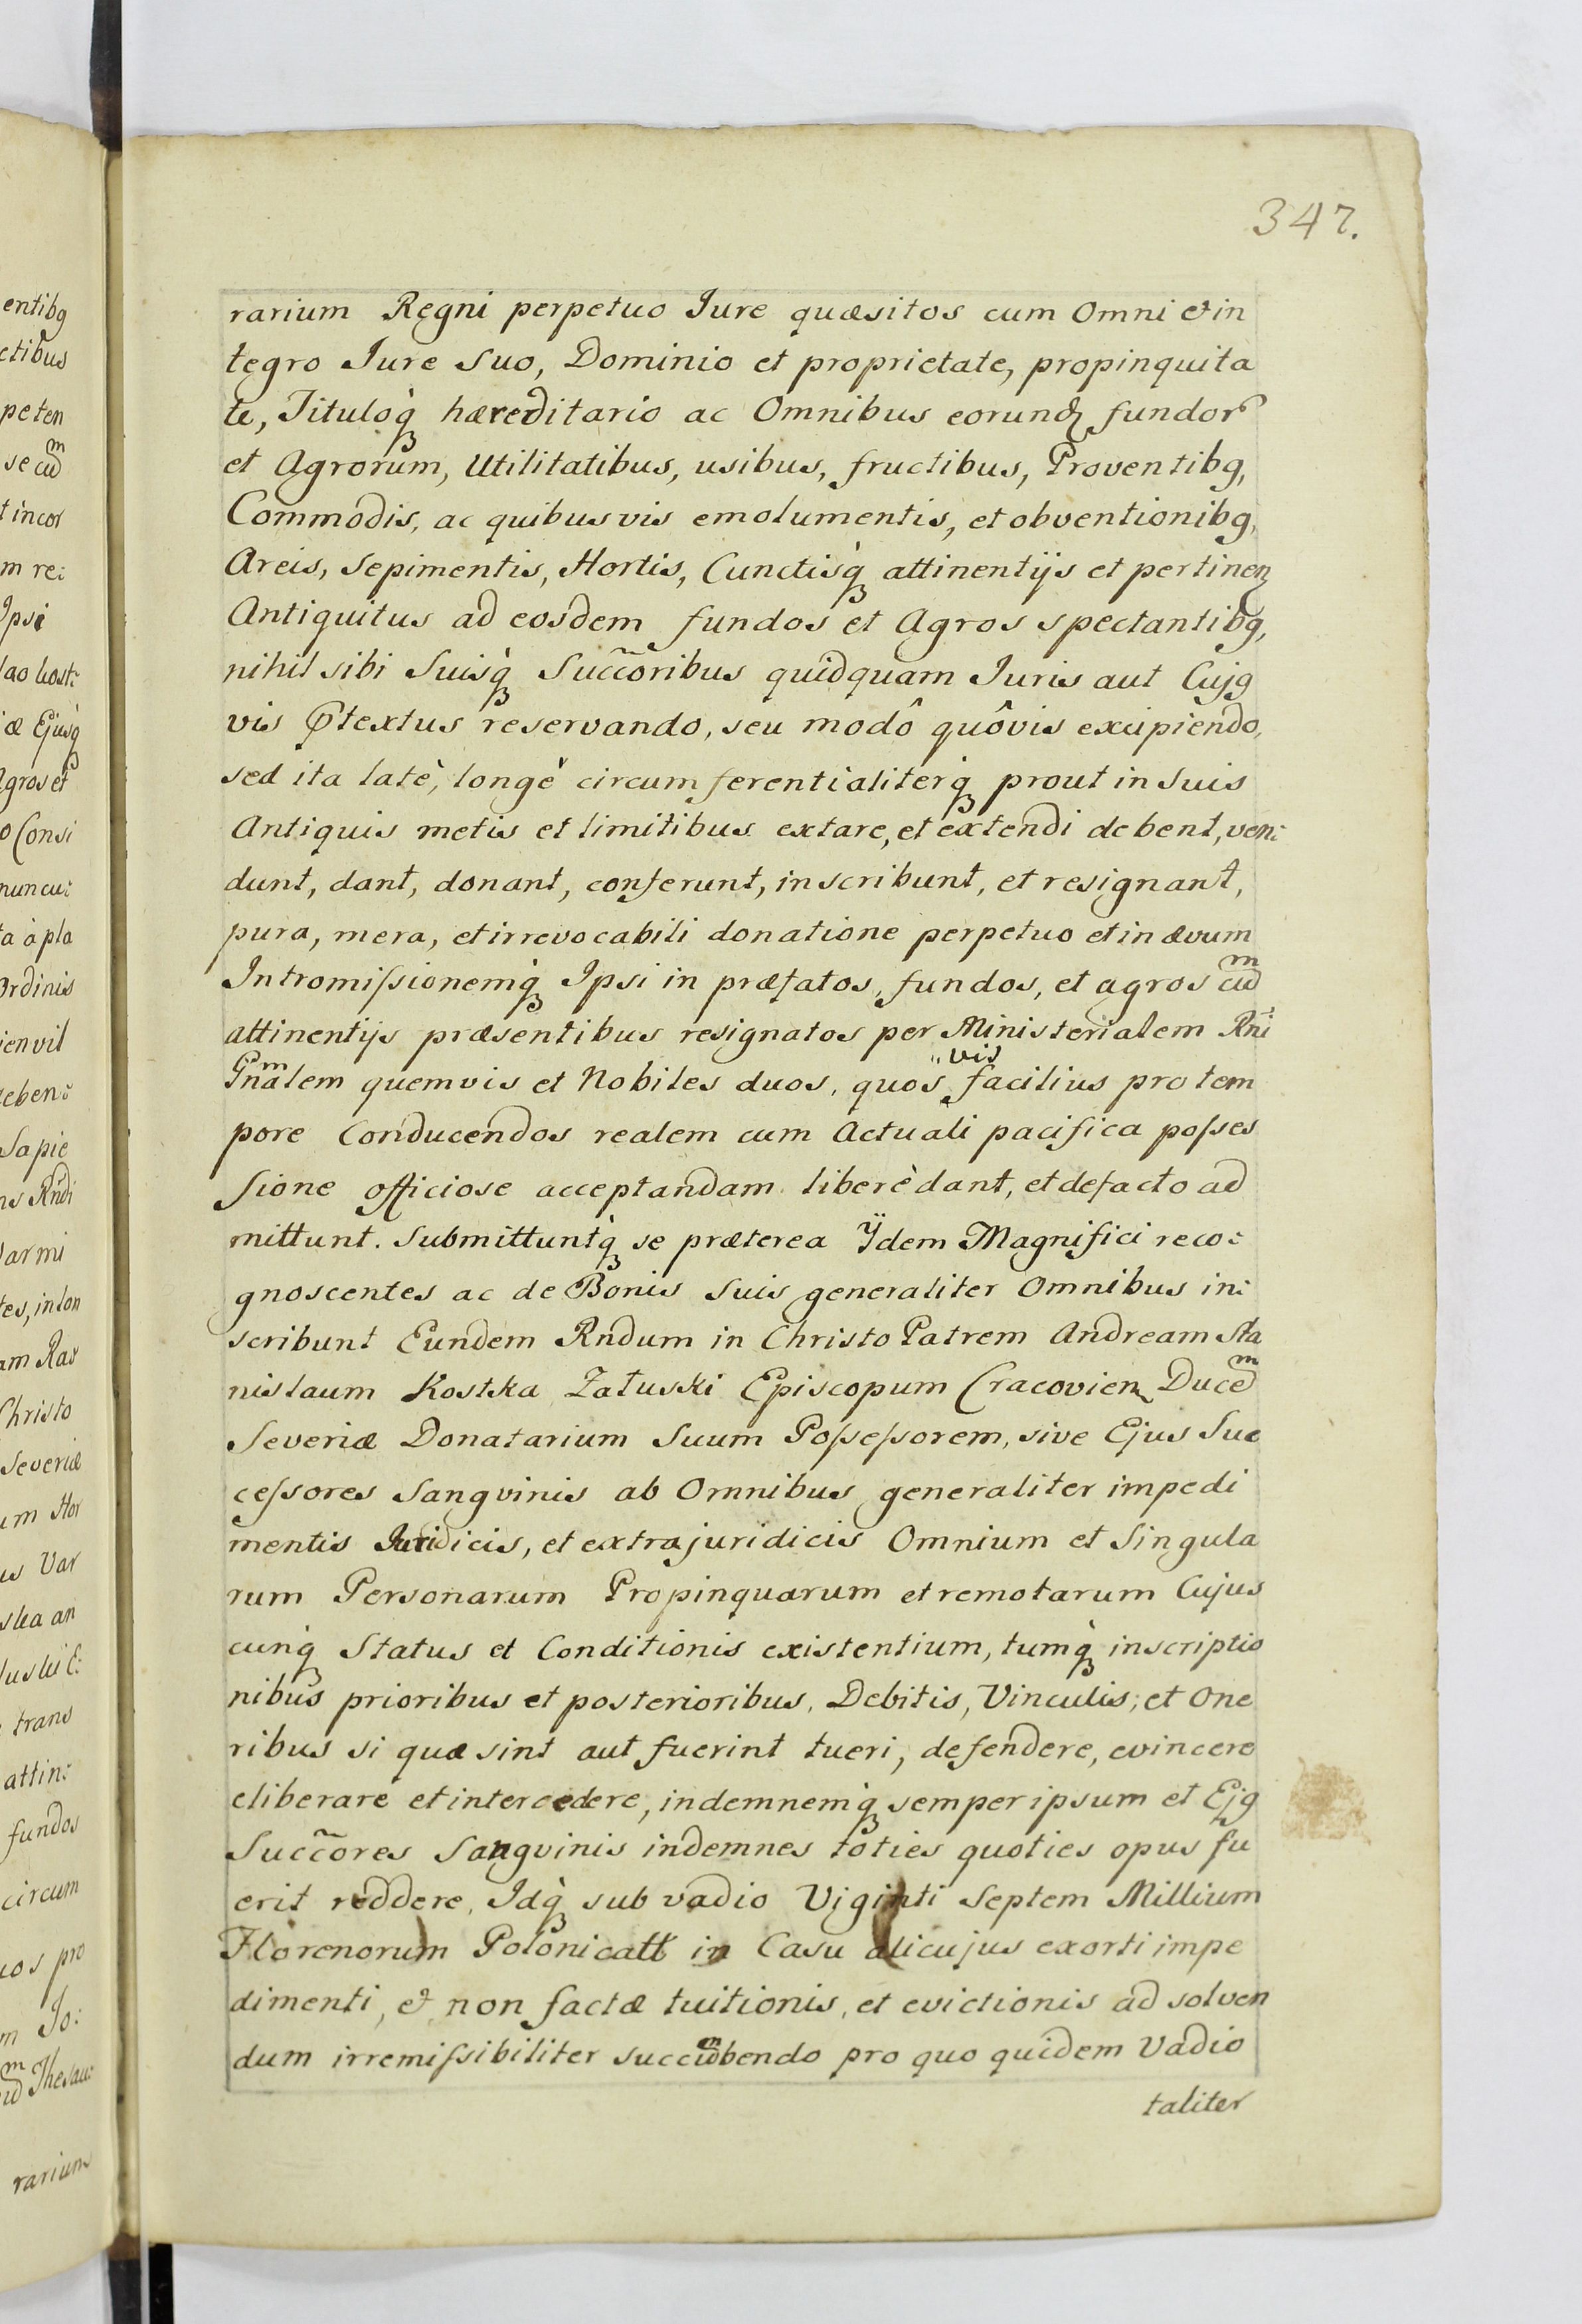 347.
rarium Regni perpetuo Jure quæsitos cum Omni et in
tegro Jure Suo, Dominio et proprietate, propinquita
te, Tituloq̀ hæreditario ac Omnibus eorund fundor
et Agrorum, Utilitatibus, usibus, fructibus, Proventibg,
Commodis, ac quibusvis emolumentis, et obventionibg,
Areis, Sepimentis, Hortis, Cunctisq̀ attinentijs et pertinen
Antiquitus ad eosdem fundos et Agros spectantibg,
nihil sibi Suisq̀ Succ̃oribus quidquam Juris aut Cujg
vis Ptextus reservando, seu modô quôvis excipiendo,
sed ita latè, longè circumferentialiterq̀ prout in Suis
Antiquis metis et limitibus extare, et extendi debent, ven:
dunt, dant, donant, conferunt, inscribunt, et resignant,
pura, mera, et irrevocabili donatione perpetuo et in ævum
Intromiſsionemq̀ Ipsi in præfatos, fundos, et agros cuᵐ
attinentijs præsentibus resignatos per Ministerialem Rni
Gnᵐalem quemvis et Nobiles duos, quos "vis facilius pro tem
pore Conducendos realem cum Actuali pacifica poſses
ſione officiose acceptandam liberè dant, et defacto ad
mittunt. Submittuntq̀ se præterea Ÿdem Magnifici reco:
gnoscentes ac de Bonis Suis generaliter Omnibus in:
scribunt Eundem Rndum in Christo Patrem Andream Sta
nislaum Kostka Załuski Episcopum Cracovien Duceᵐ
Severiæ Donatarium Suum Poſseſsorem, sive Ejus Suc
ceſsores Sangvinis ab Omnibus generaliter impedi
mentis Juridicis, et extrajuridicis Omnium et Singula
rum Personarum Propinquarum et remotarum Cujus
cunq̀ Status et Conditionis existentium, tumq̀ inscriptio
nibus prioribus et posterioribus, Debitis, Vinculis, et One
ribus si quæ sint aut fuerint tueri, defendere, evincere
eliberare et intercedere, indemnemq̀ semper ipsum et Ejg
Succ̃ores Sangvinis indemnes toties quoties opus fu
erit reddere, Idq̀ sub vadio Viginti Septem Millium
Florenorum Polonicall in Casu alicujus exorti impe
dimenti, et non factæ tuitionis, et evictionis ad solven
dum irremiſsibiliter succuᵐbendo pro quo quidem Vadio
taliter
entibg
ctibus
peten
se cuᵐ
t incor
m re:
Ipsi
lao kost:
iæ Ejusq̀
Agros et
o Consi
nuncu:
ta à pla
Ordinis
ien vil
Sapie
ns Rndi
armi
tes, in lon
am Rav
Christo
Severiæ
um Hor
us Var
ska an
luski E:
trans
attin:
fundos
circum
uos pro
m Jo:
uᵐ Thesau:
rarium